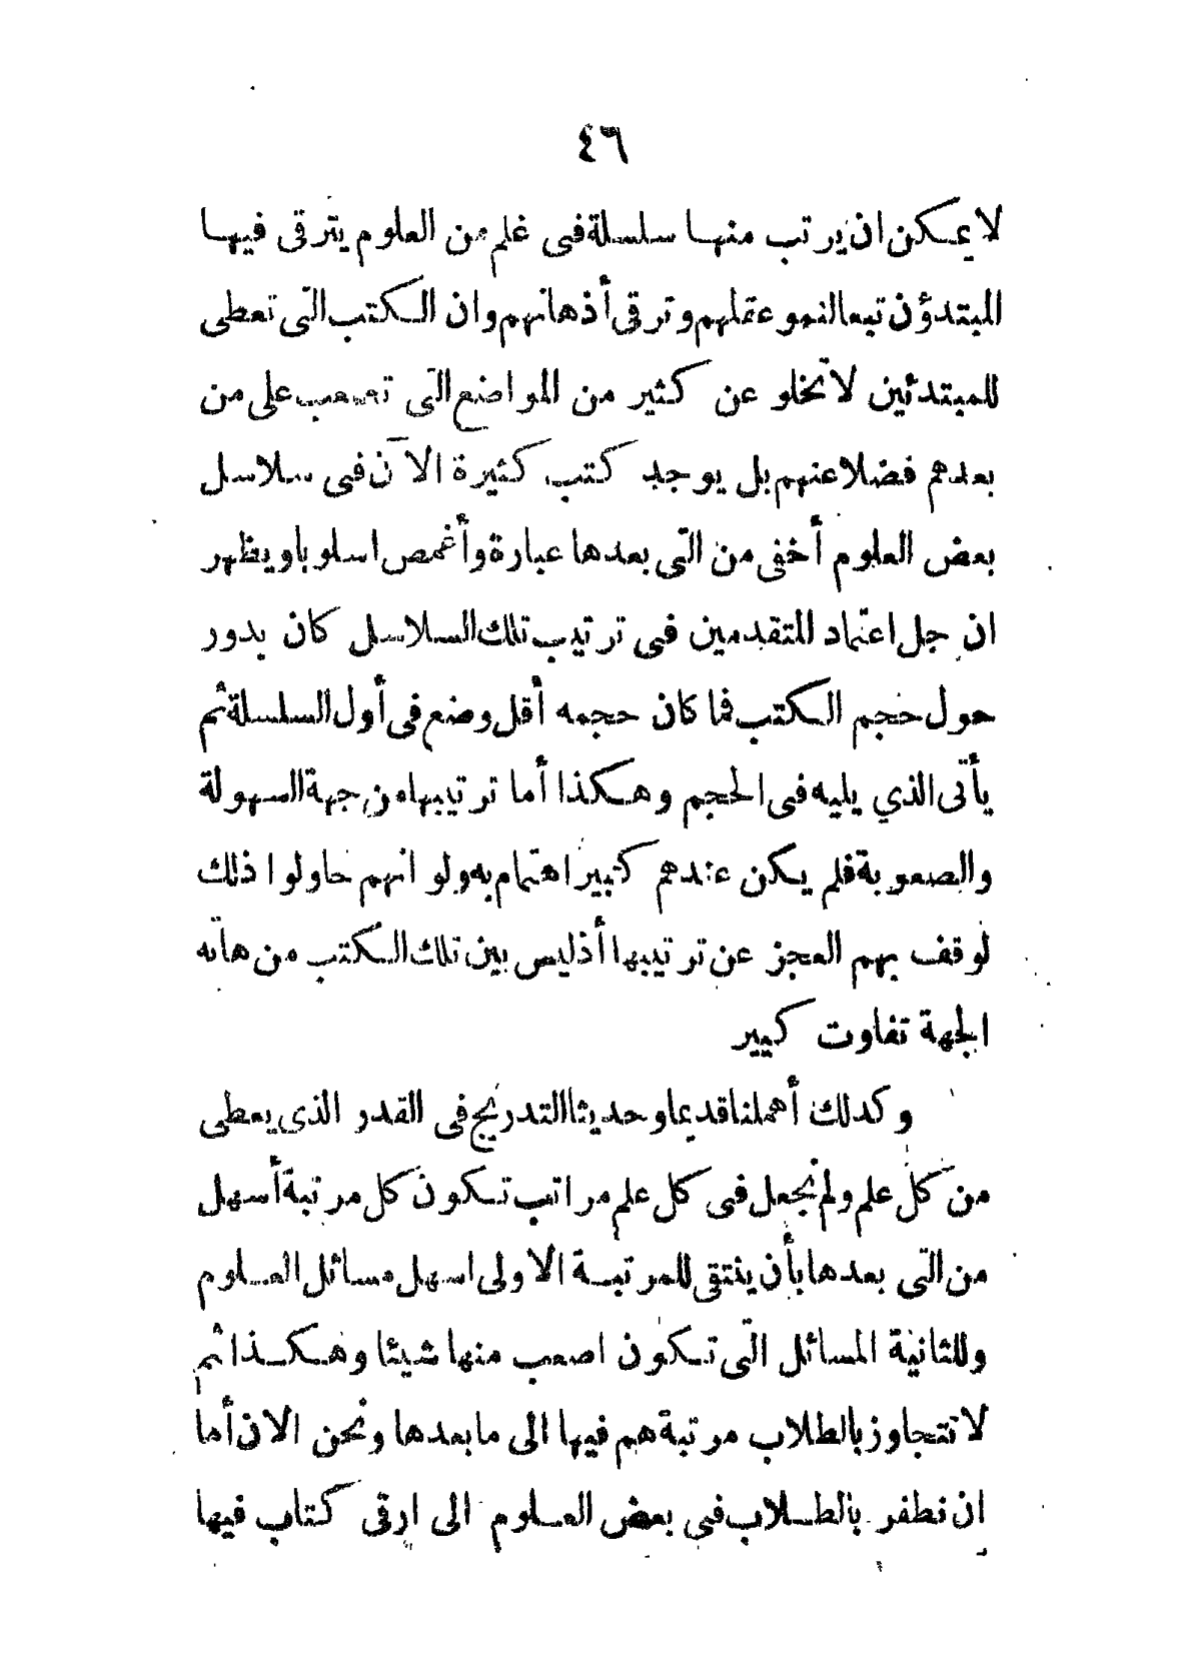 ٤٦
لا يمكن ان يرتب منها سلسلة فى علم من العلوم يترقى فيها
المبتدؤن تبعا لنمو عقلهم وترقى أذهانهم وان الكتب التى تعطى
للمبتدئين لا تخلو عن كثير من المواضع التى تصعب على من
بعدهم فضلا عنهم بل يوجد كتب كثيرة الآن فى سلاسل
بعض العلوم أخفى من التى بعدها عبارة وأغمص اسلوبا ويظهر
ان جل اعتماد المتقدمين فى ترتيب تلك السلاسل كان يدور
حول حجم الكتب فما كان حجمه أقل وضع فى أول السلسلة ثم
يأتى الذي يليه فى الحجم وهكذا أما ترتيبها من جهة السهولة
والصعوبة فلم يكن عندهم كبير اهتمام به ولو انهم حاولوا ذلك
لوقف بهم العجز عن ترتيبها أذ ليس بين تلك الكتب من هاته
الجهة تفاوت كبير
وكدلك أهملنا قديما وحديثا التدريج فى القدر الذى يعطى
من كل علم ولم نجعل فى كل علم مراتب تكون كل مرتبة أسهل
من التى بعدها بأن ينتقى للمرتبة الاولى اسهل مسائل العلوم
وللثانية المسائل التى تكون اصعب منها شيئا وهكذا ثم
لا نتجاوز بالطلاب مرتبة هم فيها الى ما بعدها ونحن الان أما
ان نطفر بالطلاب فى بعض العلوم الى ارقى كتاب فيها